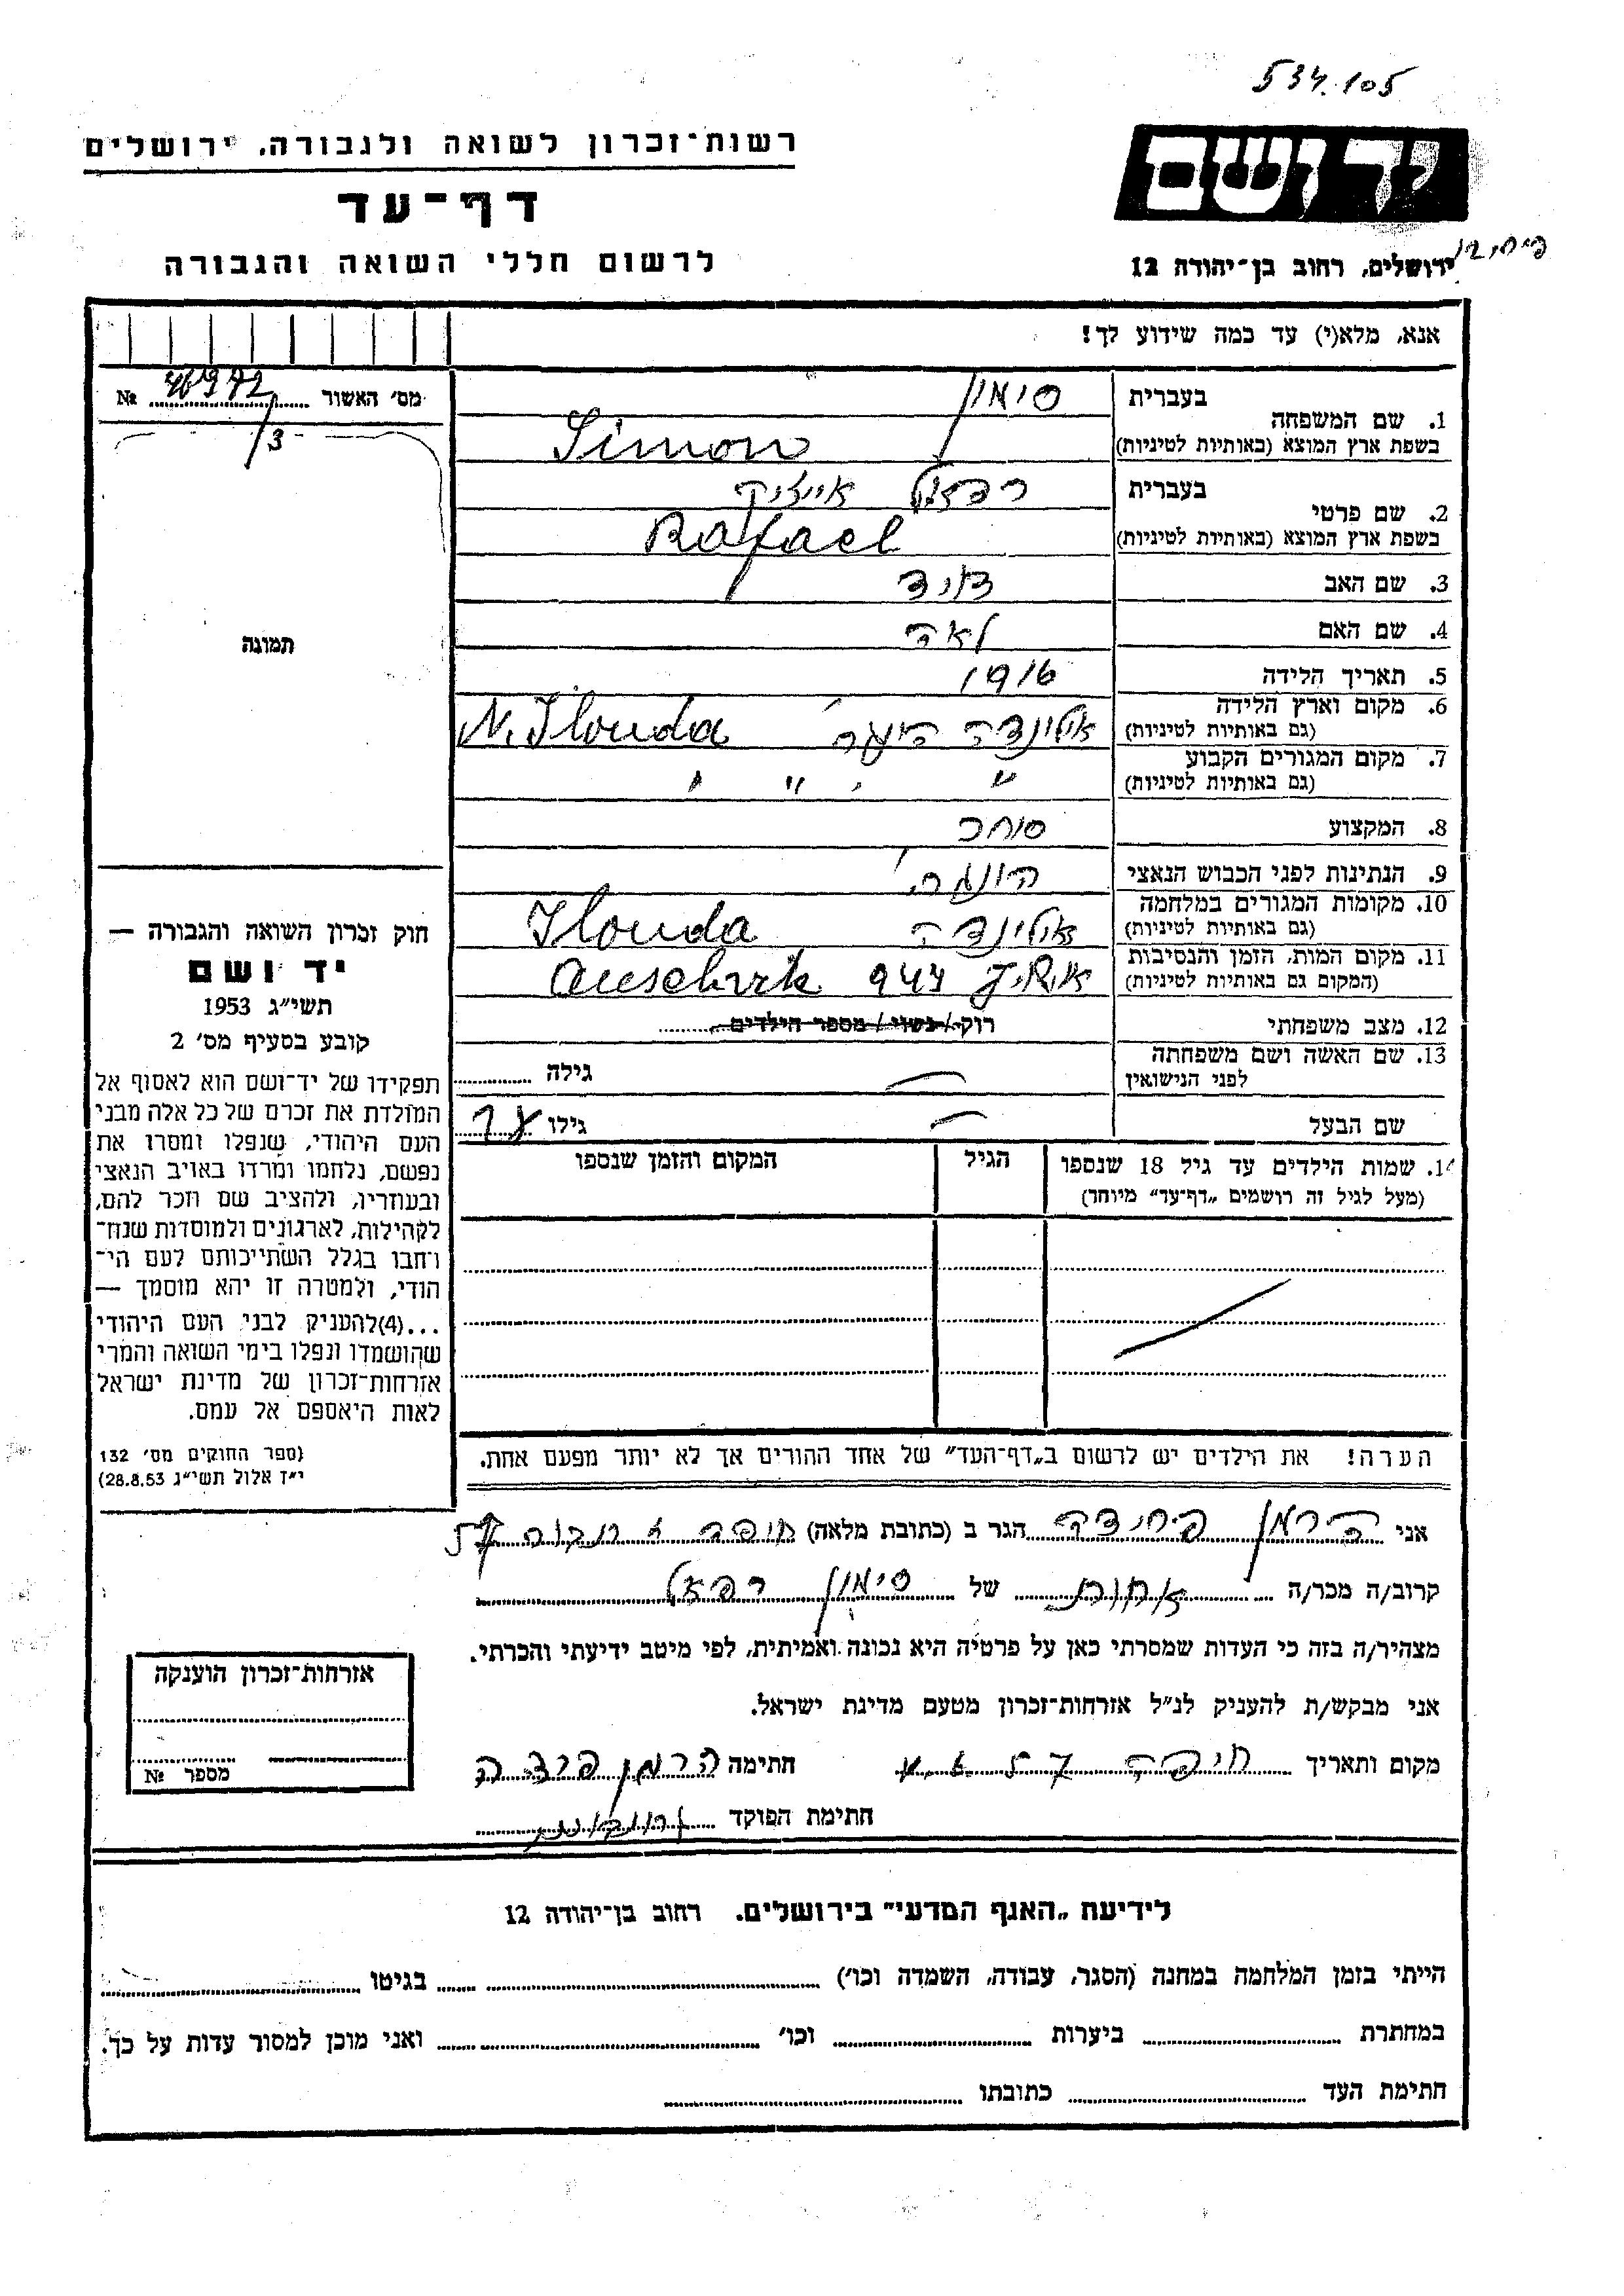 534.105
רשות־זכרון לשואה ולגבורה, ירושלים
דף־עד
לרשום חללי השואה והגבורה
יד ושם
ירושלים, רחוב בן־יהודה 12
אנא, מלא(י) עד כמה שידוע לך!
מס׳ האשור № 46972/3
תמונה
1. שם המשפחה בעברית סימון
בשפת ארץ המוצא (באותיות לטיניות) Simon
2. שם פרטי בעברית רפאל אייזיק
בשפת ארץ המוצא (באותיות לטיניות) Rafael
3. שם האב דוד
4. שם האם לאה
5. תאריך הלידה 1916
6. מקום וארץ הלידה (גם באותיות לטיניות) אילונדה N. Ilonda
7. מקום המגורים הקבוע (גם באותיות לטיניות) " " "
8. המקצוע סוחר
9. הנתינות לפני הכבוש הנאצי הונגרי
10. מקומות המגורים במלחמה (גם באותיות לטיניות) אילונדה Ilonda
11. מקום המות, הזמן והנסיבות (המקום גם באותיות לטיניות) 944
12. מצב משפחתי רוק / נשוי / מספר הילדים
13. שם האשה ושם משפחתה לפני הנישואין — גילה
שם הבעל — גילו
14. שמות הילדים עד גיל 18 שנספו (מעל לגיל זה רושמים „דף־עד” מיוחד) הגיל המקום והזמן שנספו
הערה! את הילדים יש לרשום ב„דף־העד” של אחד ההורים אך לא יותר מפעם אחת.
חוק זכרון השואה והגבורה —
יד ושם
תשי״ג 1953
קובע בסעיף מס׳ 2
תפקידו של יד־ושם הוא לאסוף אל
המולדת את זכרם של כל אלה מבני
העם היהודי, שנפלו ומסרו את
נפשם, נלחמו ומרדו באויב הנאצי
ובעוזריו, ולהציב שם וזכר להם,
לקהילות, לארגונים ולמוסדות שנח־
רחבו בגלל השתייכותם לעם הי־
הודי, ולמטרה זו יהא מוסמך —
...(4)להעניק לבני העם היהודי
שהושמדו ונפלו בימי השואה והמרי
אזרחות־זכרון של מדינת ישראל
לאות היאספם אל עמם.
(ספר החוקים מס׳ 132
י״ז אלול תשי״ג 28.8.53)
אני הרמן הגר ב (כתובת מלאה) חיפה
קרוב/ה מכר/ה אחות של סימון רפאל
מצהיר/ה בזה כי העדות שמסרתי כאן על פרטיה היא נכונה ואמיתית, לפי מיטב ידיעתי והכרתי.
אני מבקש/ת להעניק לנ״ל אזרחות־זכרון מטעם מדינת ישראל.
מקום ותאריך חיפה חתימה הרמן
חתימת הפוקד
אזרחות־זכרון הוענקה
מספר №
לידיעת „האגף המדעי” בירושלים, רחוב בן־יהודה 12
הייתי בזמן המלחמה במחנה (הסגר, עבודה, השמדה וכו׳) בגיטו
במחתרת ביערות וכו׳ ואני מוכן למסור עדות על כך.
חתימת העד כתובתו